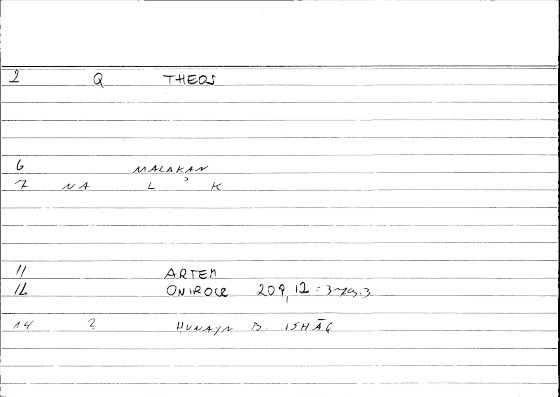 2 Q THEOS
6 MALAKAN
7 NA L ʾ K
11 ARTEM
12 ONIROCR 209, 12 = 379.3
14 2 HUNAYN B. ISHĀQ